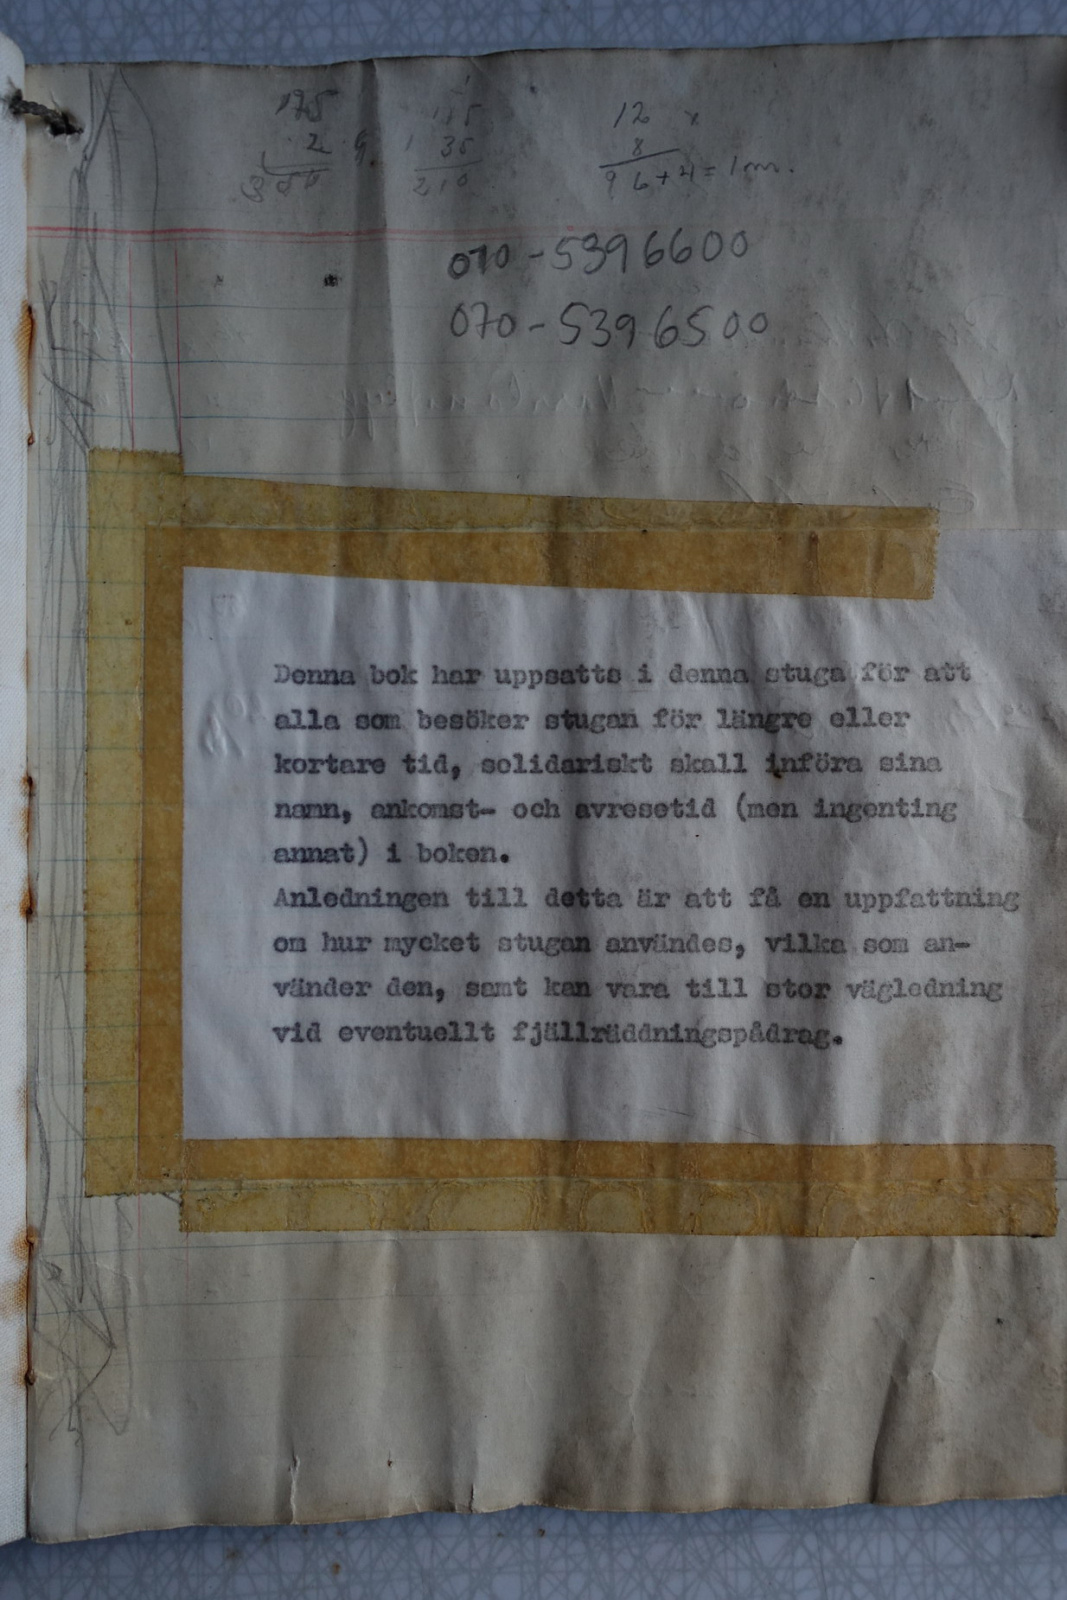 12 x
35
8
210
96+4=1m.
070-5396600
070-5396500
Denna bok har uppsatts i denna stuga för att
alla som besöker stugan för längre eller
kortare tid, solidariskt skall införa sina
namn, ankomst- och avresetid (men ingenting
annat) i boken.
Anledningen till detta är att få en uppfattning
om hur mycket stugan användes, vilka som an-
vänder den, samt kan vara till stor vägledning
vid eventuellt fjällräddningspådrag.